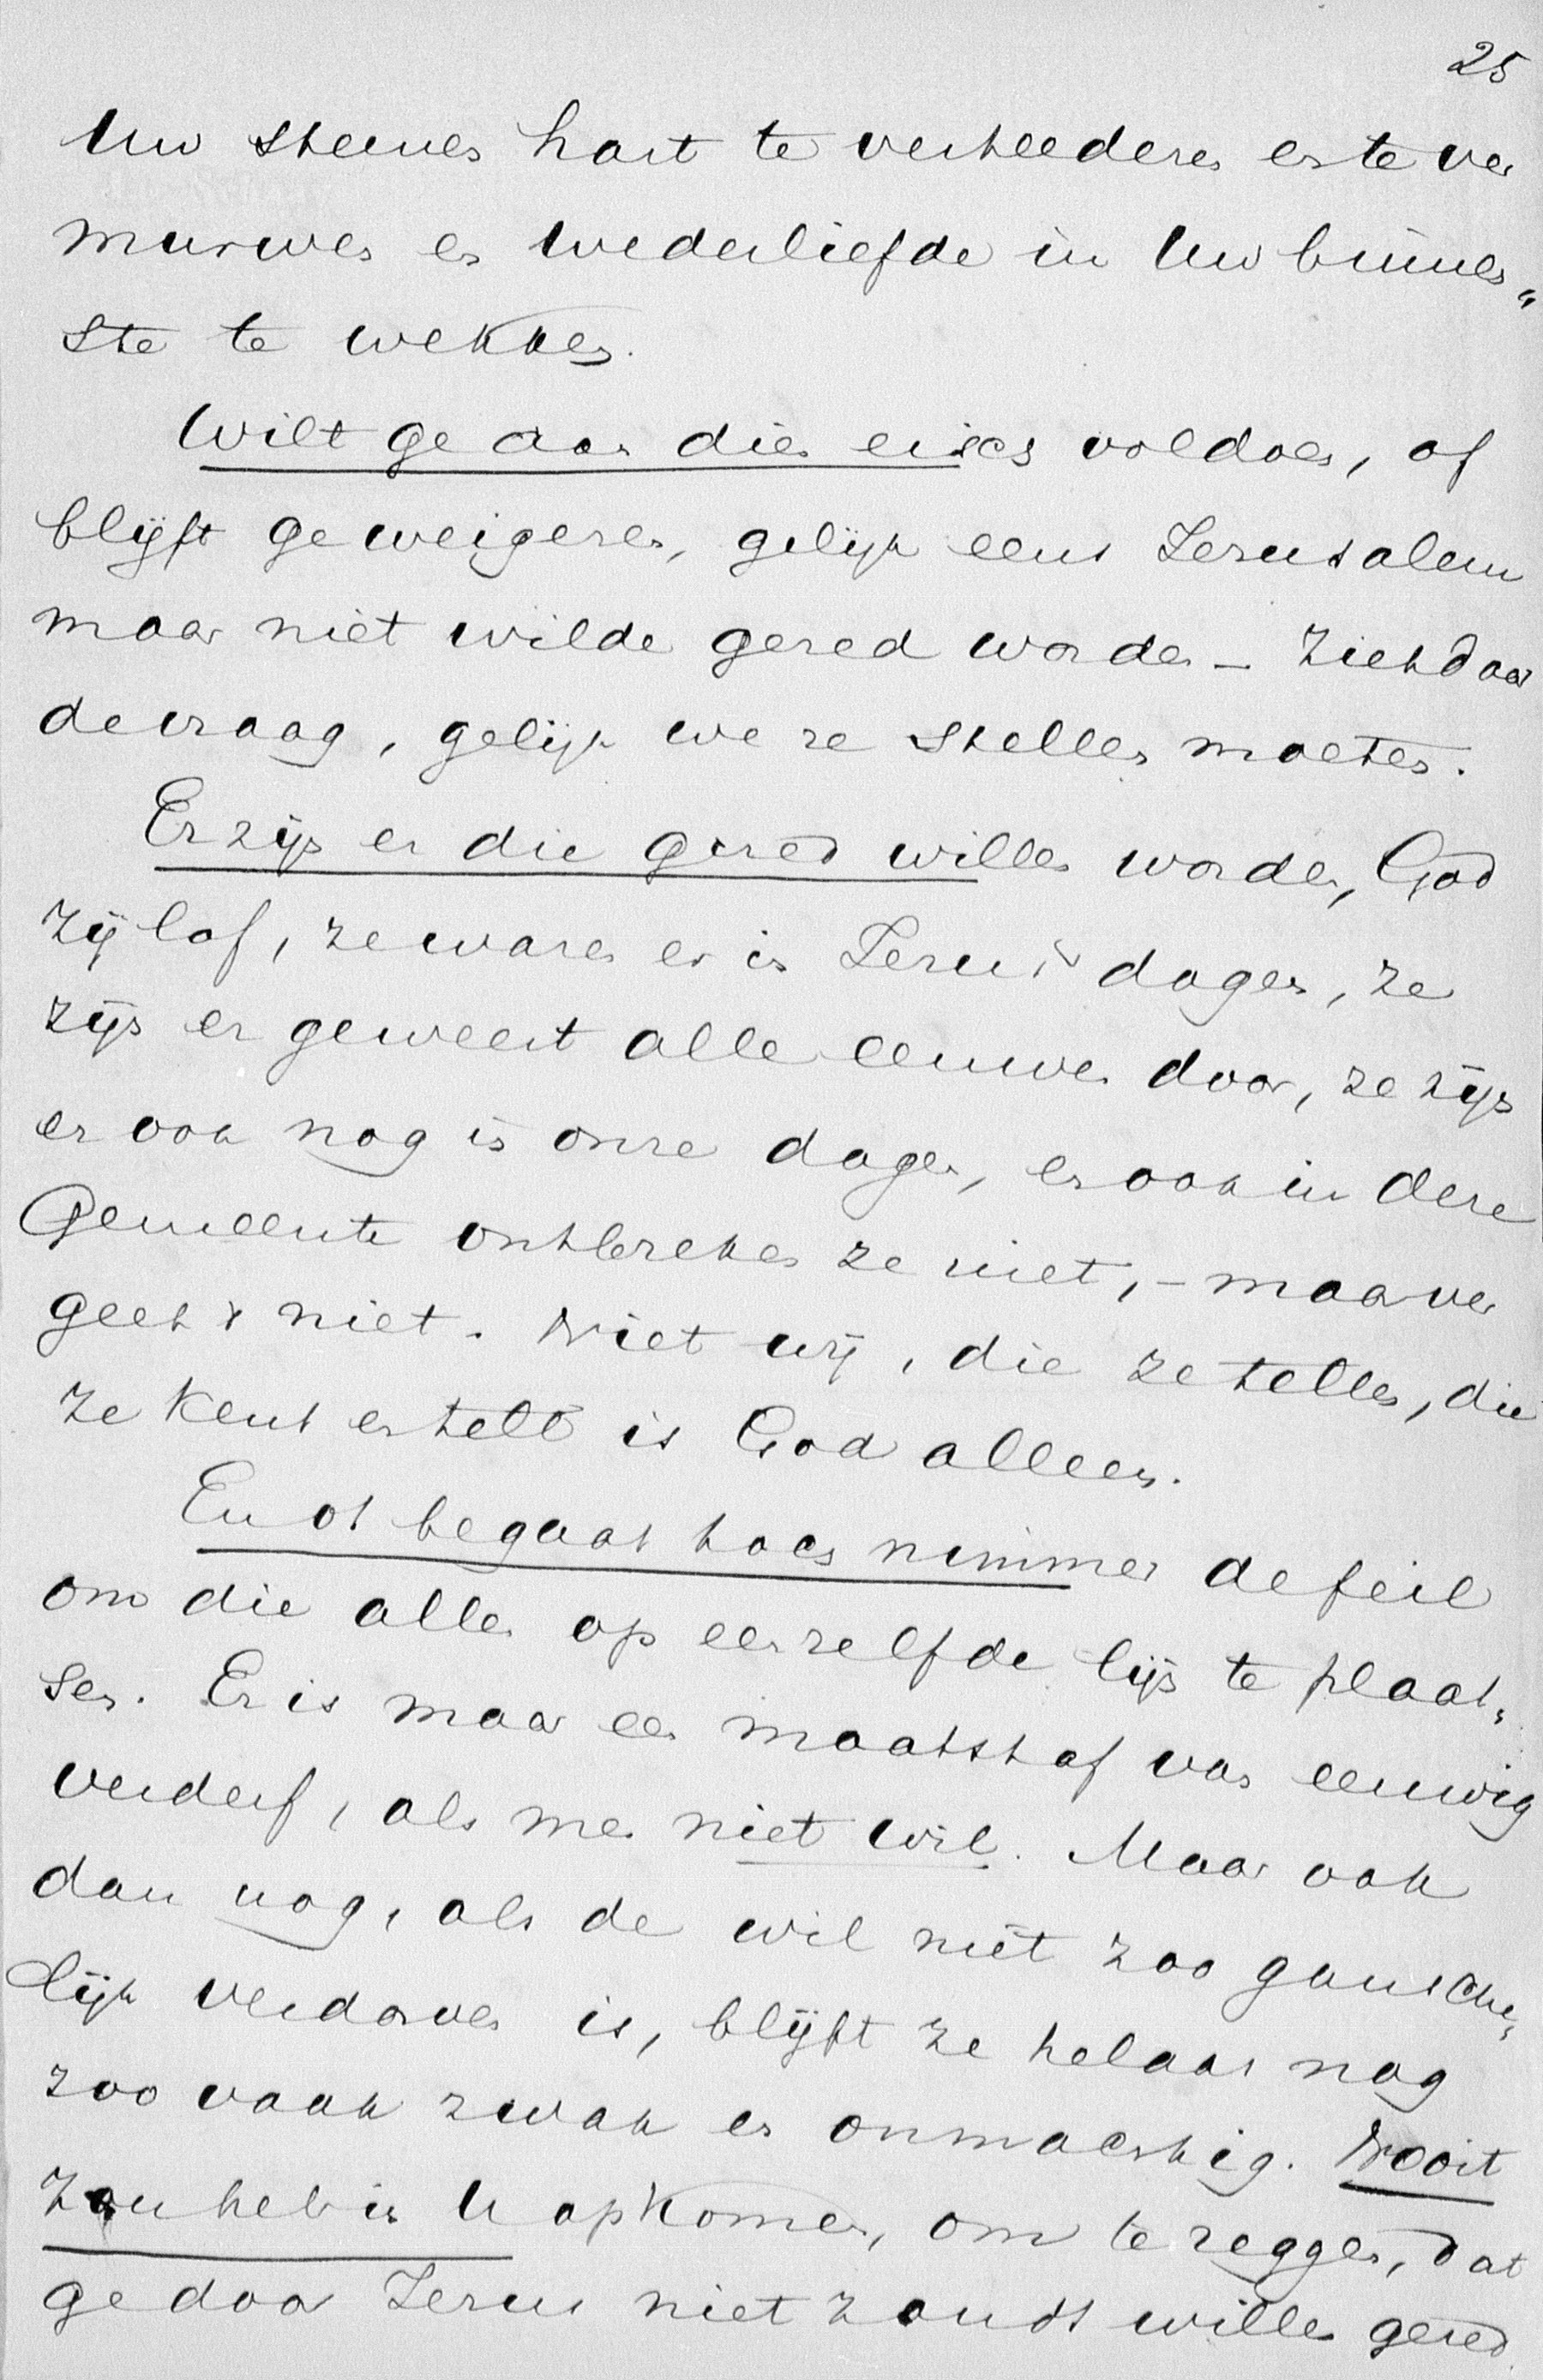 25
Uw steenen hart te verteederen en te ver
murwen en wederliefde in Uw binnen„
ste te wekken.
Wilt ge aan dien eisch voldoen, of
blijft ge weigeren, gelijk eens Jerusalem
maar niet wilde gered worden – ziehdaar
de vraag, gelijk we ze stellen moeten.
Er zijn er die gered willen worden, God
zij lof, ze waren er in Jezus dagen, ze
zijn er geweest alle eeuwen door, ze zijn
er ook nog in onze dagen, en ook in deze
Gemeente ontbreken ze niet, – maar ver
geet 't niet. Niet wij, die ze tellen, die
ze kent en telt is God alleen.
En ot begaat toch nimmer de feil
om die allen op eenzelfde lijn te plaat„
sen. Er is maar een maatstaf van eeuwig
verderf, als men niet wil. Maar ook
dan nog, als de wil niet zoo gansche„
lijk verdorven is, blijft ze helaas nog
zoo vaak zwak en onmachtig. Nooit
zou het in U opkomen, om te zeggen, dat
ge door Jezus niet zoudt willen gered